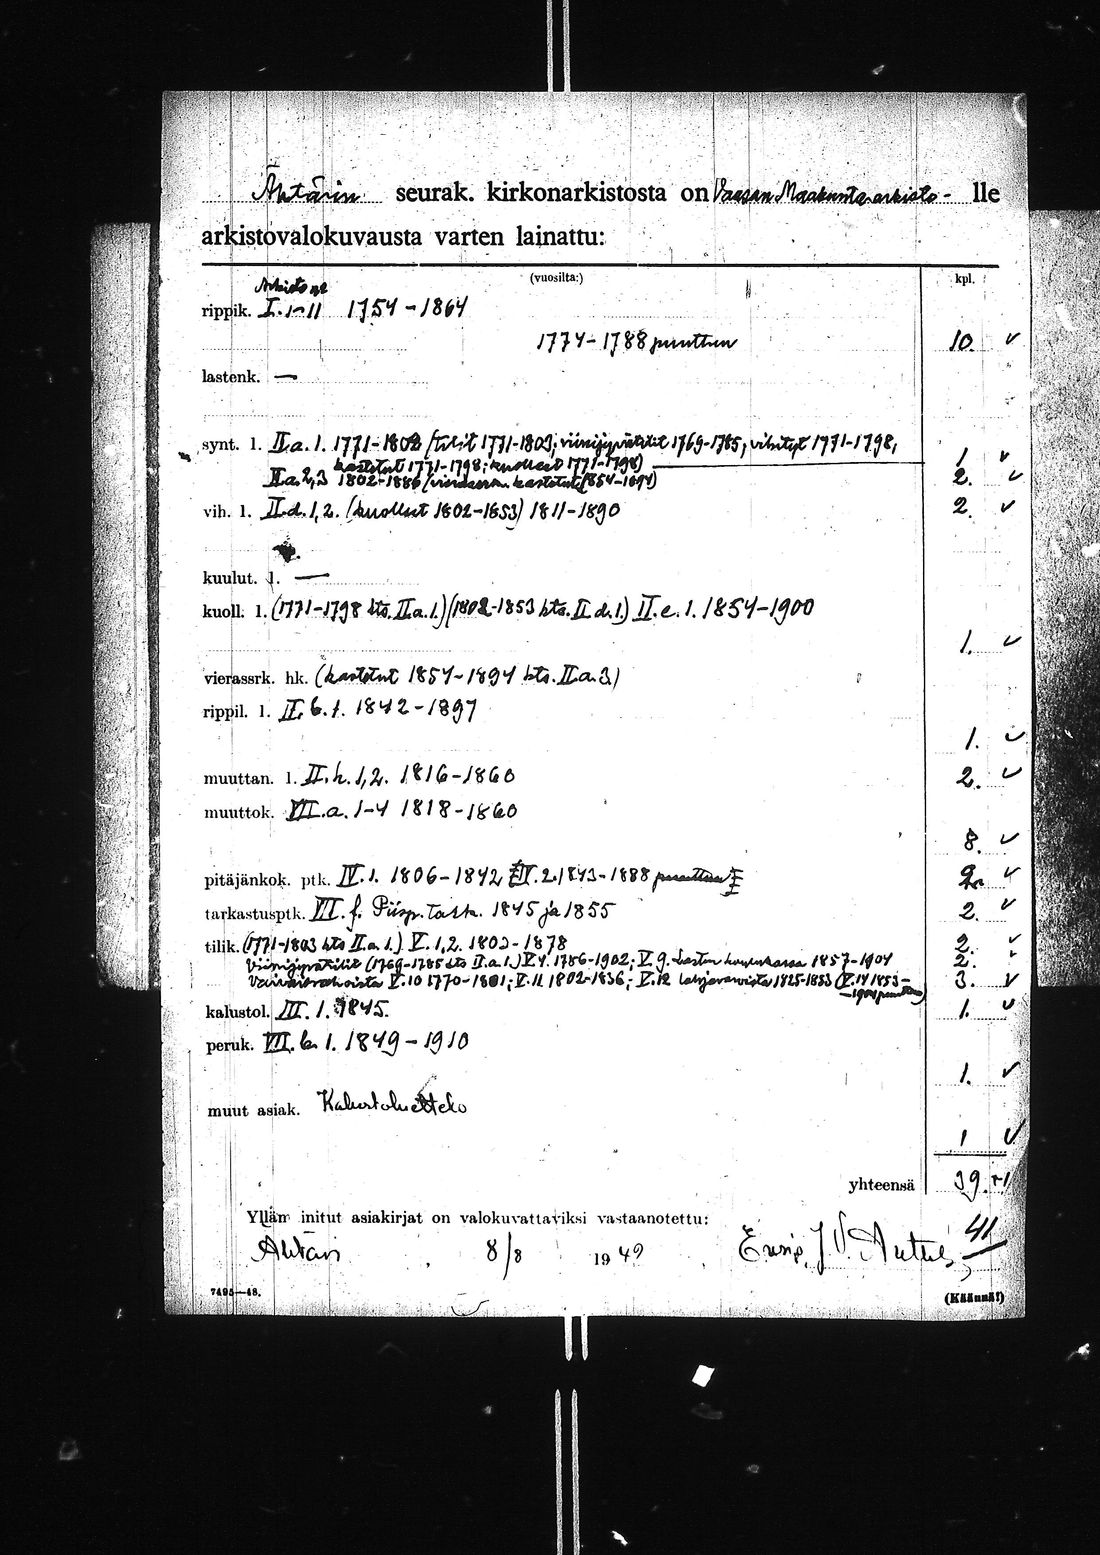 Ähtärin seurak. kirkonarkistosta on Vaasan Maakunta-arkisto - lle
arkistovalokuvausta varten lainattu:
(vuosilta:) kpl.
Arkisto nr
rippik. I. 1-11 1754-1864
1774-1788 puuttuu 10. ✓
lastenk. —
synt. l. II.a. 1. 1771-1802 (tilit 1771-1803; viinijyvätilit 1769-1785, vihityt 1771-1798,
kastetut 1771-1798; kuolleet 1771-1798) 1. ✓
II.a. 2,3 1802-1886 (vierassrk. kastetut 1854-1894) 2. ✓
vih. l. II.d. 1,2. (kuolleet 1802-1853) 1811-1890 2. ✓
kuulut. l. —
kuoll. l. (1771-1798 kts. II.a.1.) (1802-1853 kts. II.d.1.) II.e. 1. 1854-1900
1. ✓
vierassrk. hk. (kastetut 1854-1894 kts. II.a.3)
rippil. l. II.b.1. 1842-1897
1. ✓
muuttan. l. II.h. 1,2. 1816-1860 2. ✓
muuttok. VII.a. 1-4 1818-1860
8. ✓
pitäjänkok. ptk. IV.1. 1806-1842 IV.2. 1843-1888 puuttuu 2. ✓
tarkastusptk. VII. f. Piisp. tark. 1845 ja 1855 2. ✓
tilik. (1771-1803 kts II.a.1.) V. 1,2. 1803-1878 2. ✓
Viinijyvätilit (1769-1785 kts II.a.1.) V.4. 1786-1902; V.9. Lasten koulukassa 1857-1904 2. ✓
Vaivaisrahoista V.10 1770-1801; V.11 1802-1836; V.12 Lahjavaroista 1825-1853 (V.14 1853- 3. ✓
-1904 puuttuu)
kalustol. III. 1. 1845. 1. ✓
peruk. VII. b. 1. 1849-1910
1. ✓
muut asiak. Kalustoluettelo
1 ✓
yhteensä 39. +1
41
Yllämainitut asiakirjat on valokuvattaviksi vastaanotettu:
Ähtäri 8/8 1949 J V
7495—48. (Käännä!)